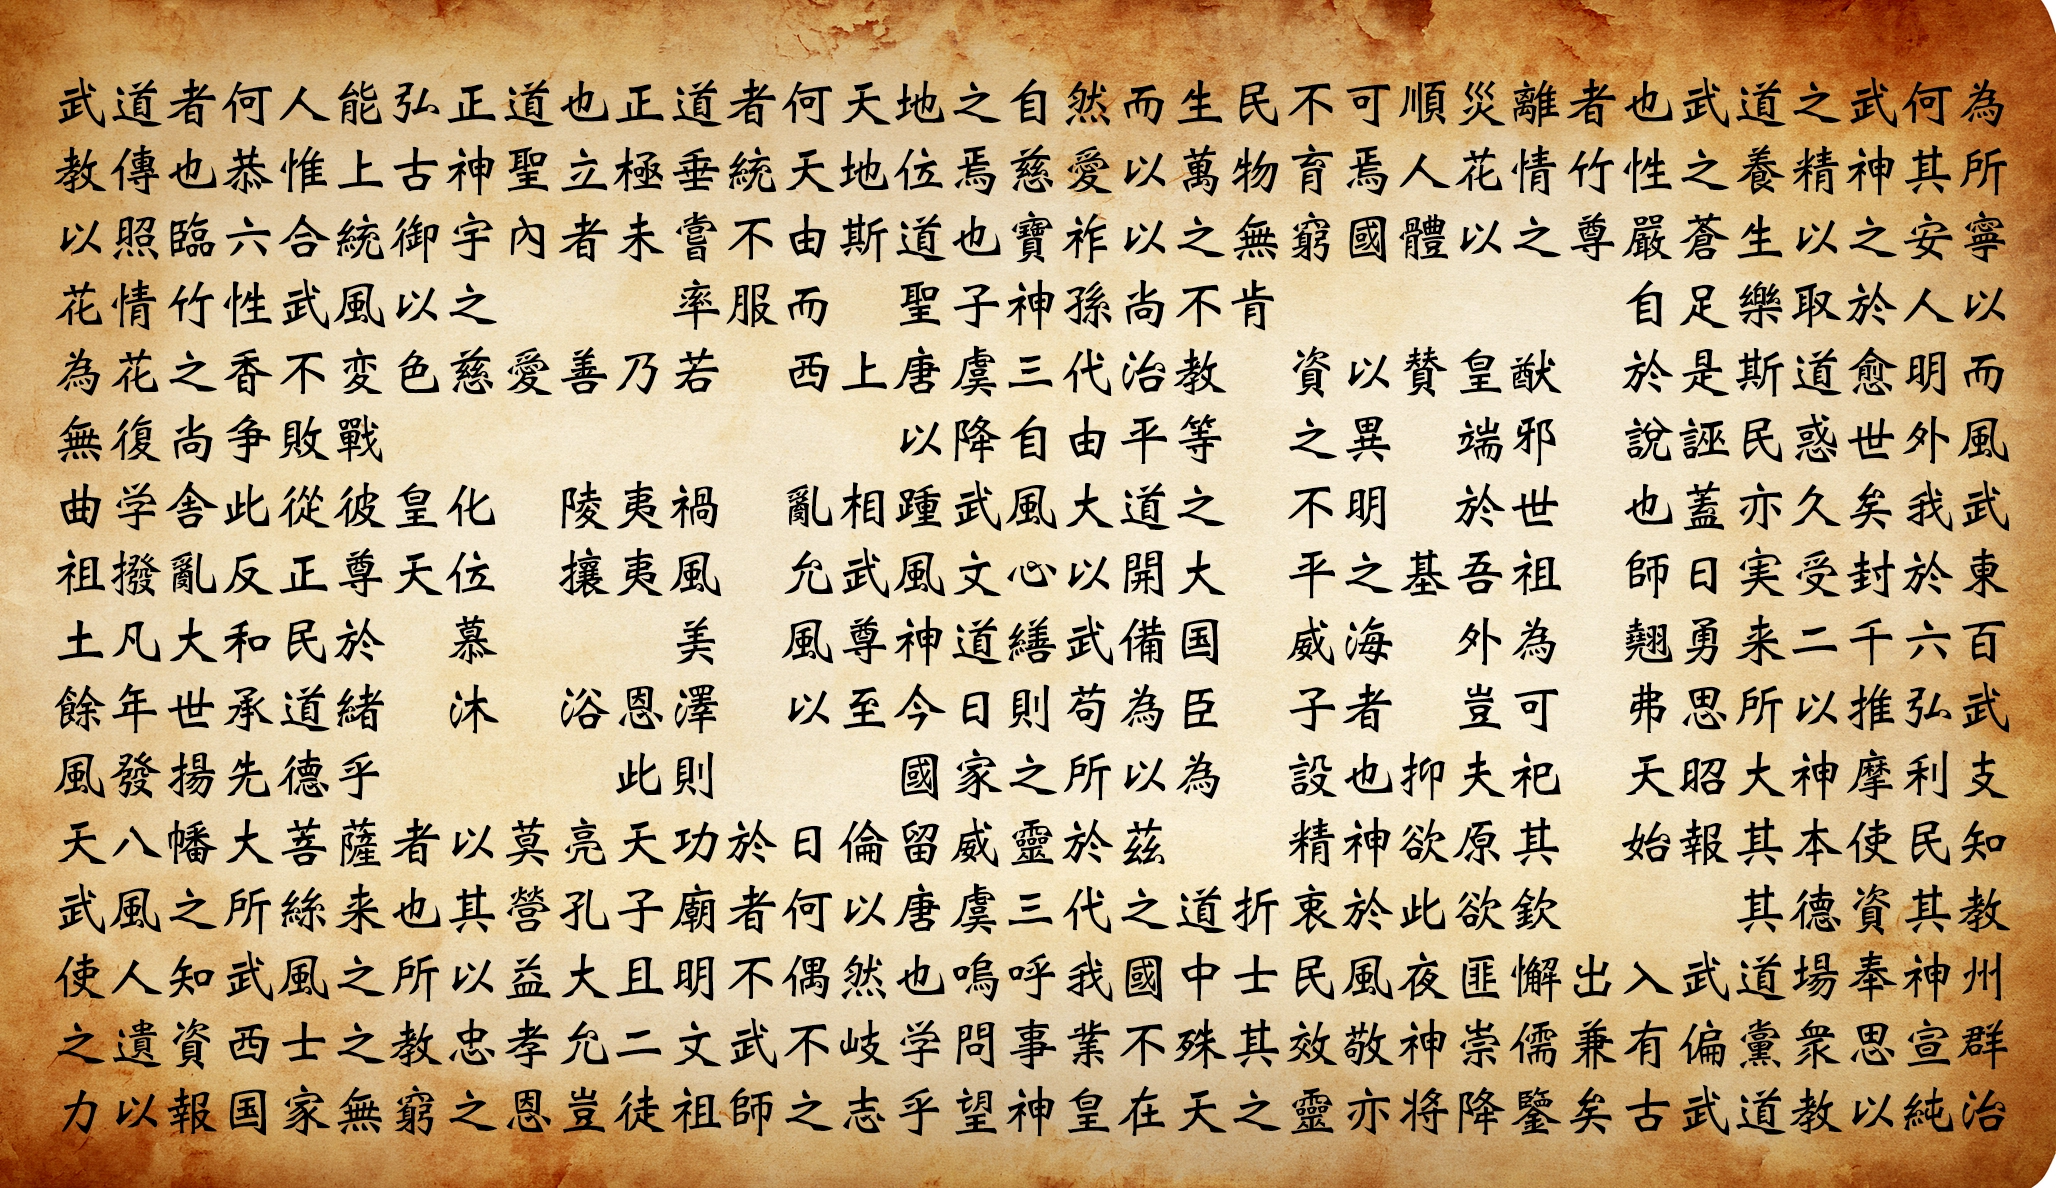 武道者何人能弘正道也正道者何天地之自然而生民不可順災離者也武道之武何為
教傳也恭惟上古神聖立極垂統天地位焉慈愛以萬物育焉人花情竹性之養精神其所
以照臨六合統御宇內者未嘗不由斯道也寶祚以之無窮國體以之尊嚴蒼生以之安寧
花情竹性武風以之 率服而 聖子神孫尚不肯 自足樂取於人以
為花之香不変色慈愛善乃若 西上唐虞三代治教 資以賛皇猷 於是斯道愈明而
無復尚争敗戰 以降自由平等 之異 端邪 說誣民惑世外風
曲学舎此從彼皇化 陵夷禍 亂相踵武風大道之 不明 於世 也蓋亦久矣我武
祖撥亂反正尊天位 攘夷風 允武風文心以開大 平之基吾祖 師日実受封於東
土凡大和民於 慕 美 風尊神道繕武備国 威海 外為 翹勇来二千六百
餘年世承道緒 沐 浴恩澤 以至今日則苟為臣 子者 豈可 弗思所以推弘武
風發揚先德乎 此則 國家之所以為 設也抑夫祀 天昭大神摩利支
天八幡大菩薩者以莫亮天功於日倫留威靈於茲 精神欲原其 始報其本使民知
武風之所絲来也其營孔子廟者何以唐虞三代之道折衷於此欲欽 其德資其教
使人知武風之所以益大且明不偶然也嗚呼我國中士民風夜匪懈出入武道場奉神州
之遺資西士之教忠孝允二文武不岐学問事業不殊其效敬神崇儒兼有偏黨衆思宣群
力以報国家無窮之恩豈徒祖師之志乎望神皇在天之靈亦将降鑒矣古武道教以純治